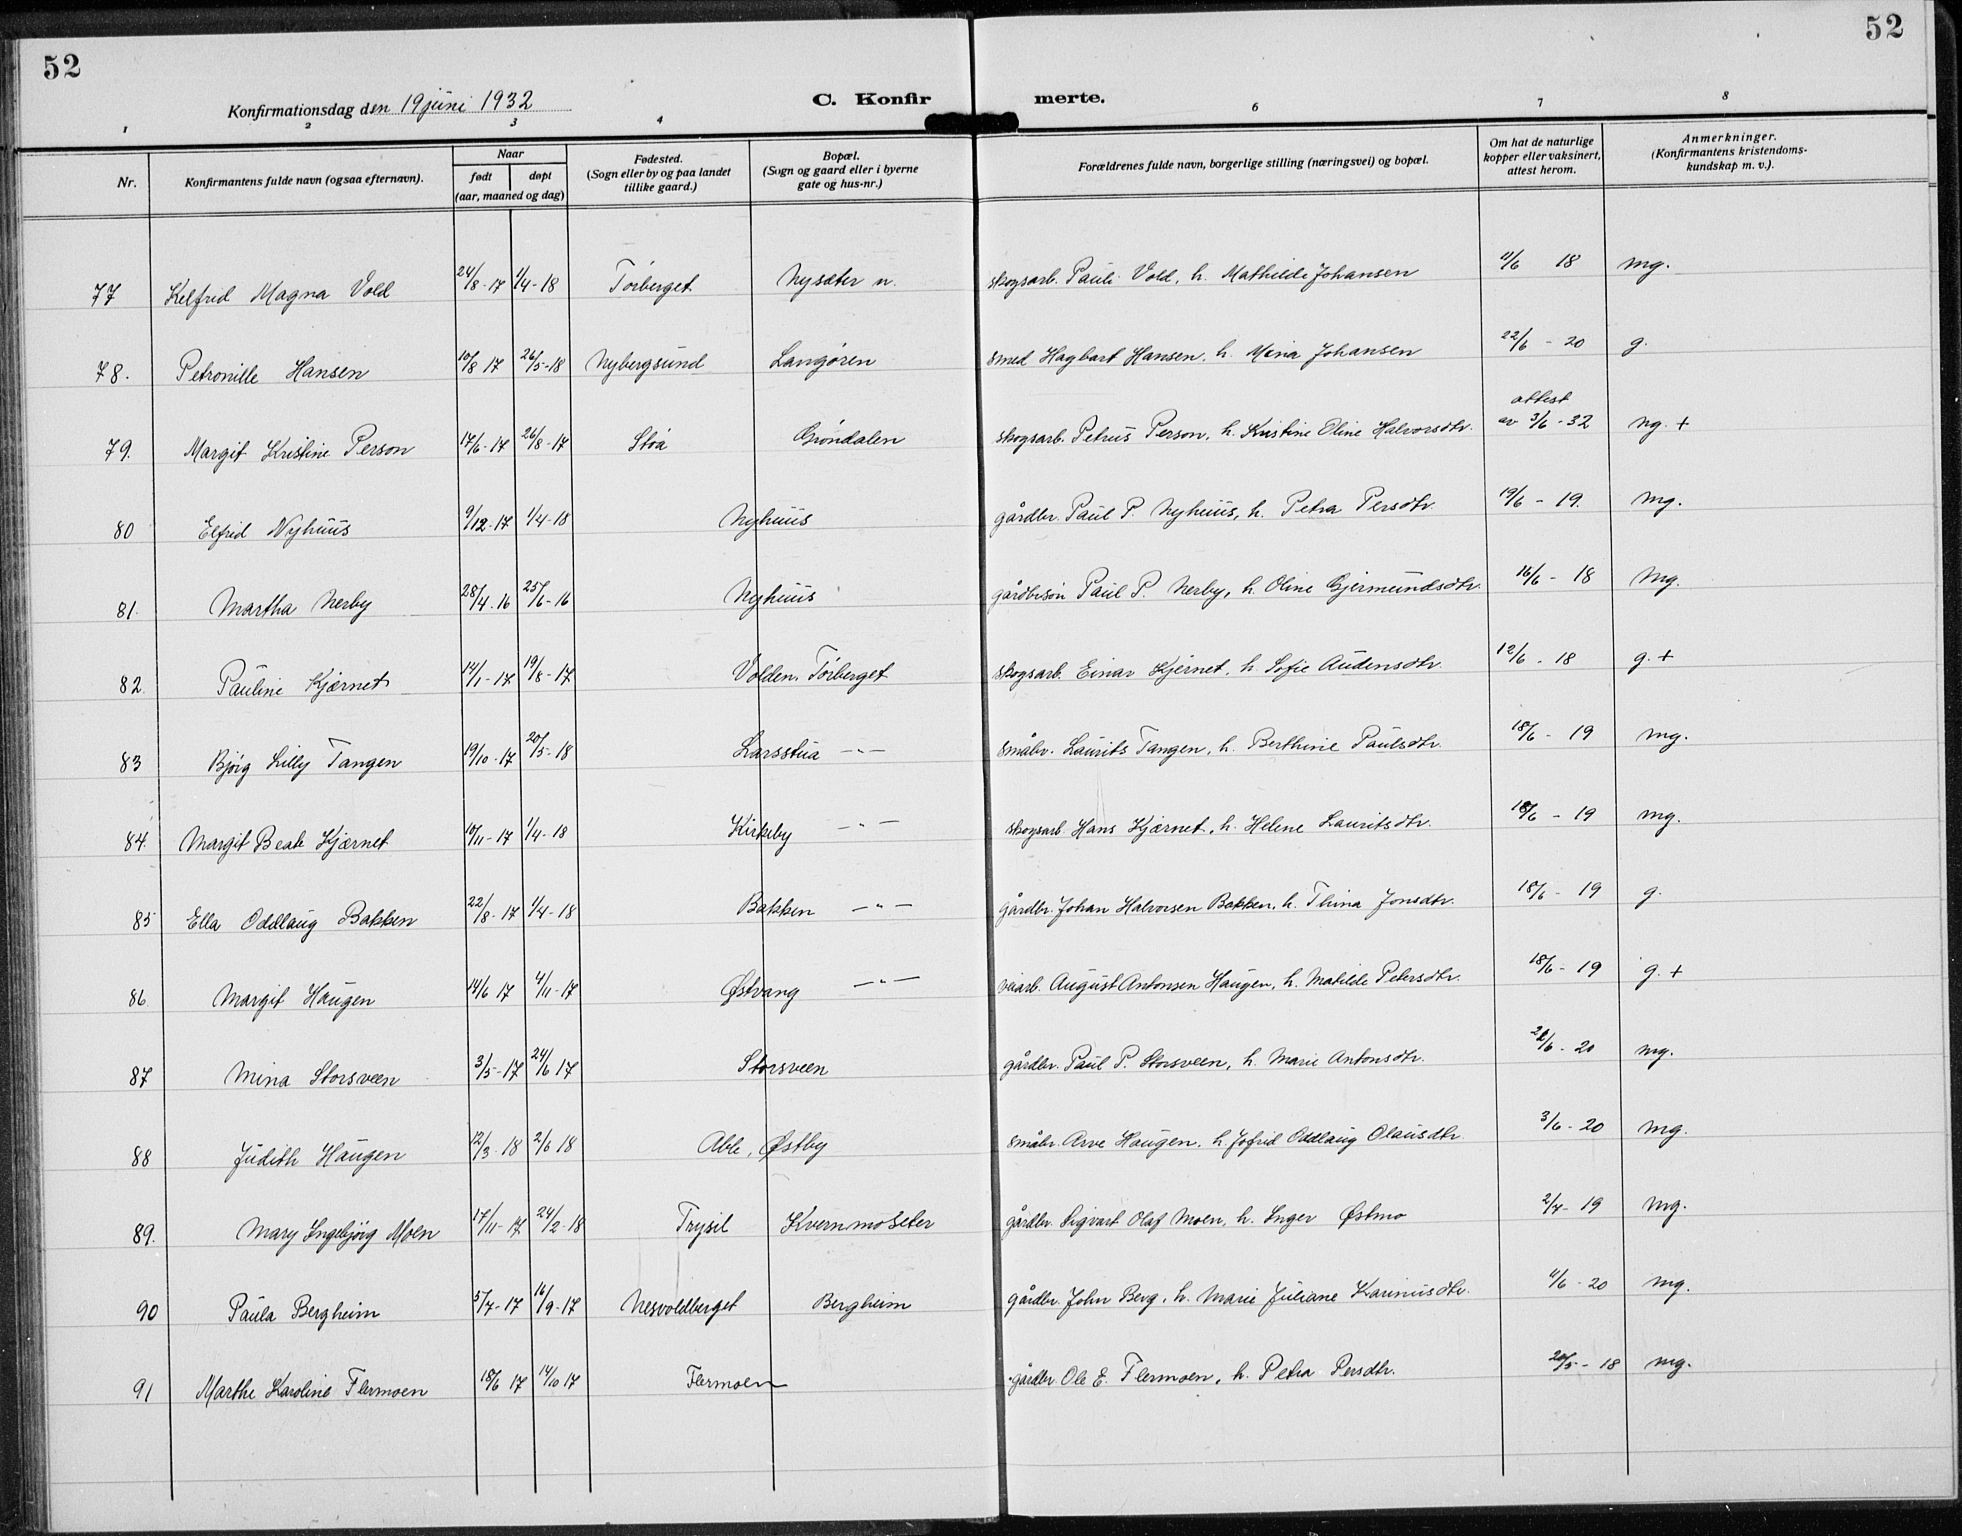 52
52
Konfirmationsdag den 19 juni 1932
C. Konfirmerte.
1 2 3 4 6 7 8
Nr.
Konfirmantens fulde navn (ogsaa efternavn).
Naar
født døpt
(aar, maaned og dag)
Fødested.
(Sogn eller by og paa landet
tillike gaard.)
Bopæl.
(Sogn og gaard eller i byerne
gate og hus-nr.)
Forældrenes fulde navn, borgerlige stilling (næringsvei) og bopæl.
Om hat de naturlige
kopper eller vaksinert,
attest herom.
Anmerkninger.
(Konfirmantens kristendoms-
kundskap m. v.).
77 Kelfrid Magna Vold 24/8-17 1/4-18 Törberget Nysæter n. skogsarb. Pauli Vold, h. Mathilde Johansen 11/6 18 mg.
78. Petronille Hansen 10/8 17 26/5-18 Nybergsund Langøren smed Hagbart Hansen, h. Mina Johansen 22/6 - 20 g.
79. Margit Kristine Person 17/6-17 26/8-17 Støa Grøndalen skogsarb. Petrus Person, h. Kristine Oline Halvorsdtr. attest av 3/6-32 ng. +
80 Elfrid Nyhuus 9/12-17 1/4-18 Nyhuus gårdbr. Paul P. Nyhuus, h. Petra Persdtr. 19/6 - 19. mg.
81. Martha Nerby 28/4.16 25/6-16 Nyhuus gårdbrsön Paul P. Nerby, h. Oline Gjermundsdtr. 16/6 - 18 Mg.
82. Pauline Kjærnet 14/1-17 19/8-17 Volden, Törberget skogsarb. Einar Kjernet, h. Sofie Audensdtr. 12/6 - 18 g. +
83 Bjørg Lilly Tangen 19/10-17 20/5-18 Larsstua —"— småbr. Laurits Tangen, h. Berthine Paulsdtr. 18/6 - 19 mg.
84. Margit Beate Kjærnet 10/11-17 1/4-18 Kirkeby —"— skogsarb. Hans Kjærnet, h. Helene Lauritsdtr. 18/6 - 19 mg.
85 Ella Oddlaug Bakken 22/8-17 1/4-18 Bakken —"— gårdbr. Johan Halvorsen Bakken, h. Thina Jonsdtr. 18/6 - 19 g.
86. Margit Haugen 14/6 17 4/11-17 Østvang —"— veiarb. August Antonsen Haugen, h. Matilde Petersdtr. 18/6 - 19 g. +
87 Mina Storsveen 3/5-17 24/6 17 Storsveen gårdbr. Paul P. Storsveen, h. Marie Antonsdtr. /6 - 20 mg.
88 Judith Haugen 12/3-18 2/6 18 Able, Østby småbr. Arve Haugen, h. Jofrid Oddlaug Olausdtr. 3/6-20 mg.
89. Mary Ingebjørg Moen 17/11-17 24/2-18 Trysil Kvernmoseter gårdbr. Sigvart Olaf Moen, h. Inger Østmo 2/7-19 mg.
90 Paula Bergheim 5/7-17 16/9-17 Nesvoldberget Bergheim gårdbr. John Berg, h. Marie Juliane Karinusdtr. 4/6-20 mg.
91 Marthe Karoline Flermoen 18/6 17 14/10 17 Flermoen gårdbr. Ole E. Flermoen, h. Petra Persdtr. 20/5-18 mg.